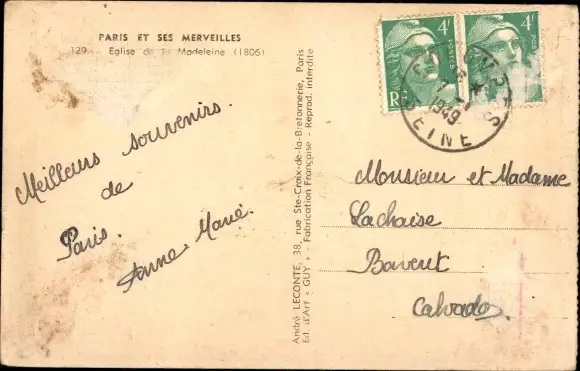 PARIS ET SES MERVEILLES
129. - Eglise de la Madeleine (1806)
Meilleurs souvenirs.
de
Paris.
Anne Marie.
André LECONTE, 38, rue Ste-Croix-de-la-Bretonnerie, Paris
Ed. d'Art « GUY » - Fabrication Française - Reprod. interdite
4F
POSTES
RF
4F
1949
SEINE
Monsieur et Madame
Lachaise
Bavent
Calvados.